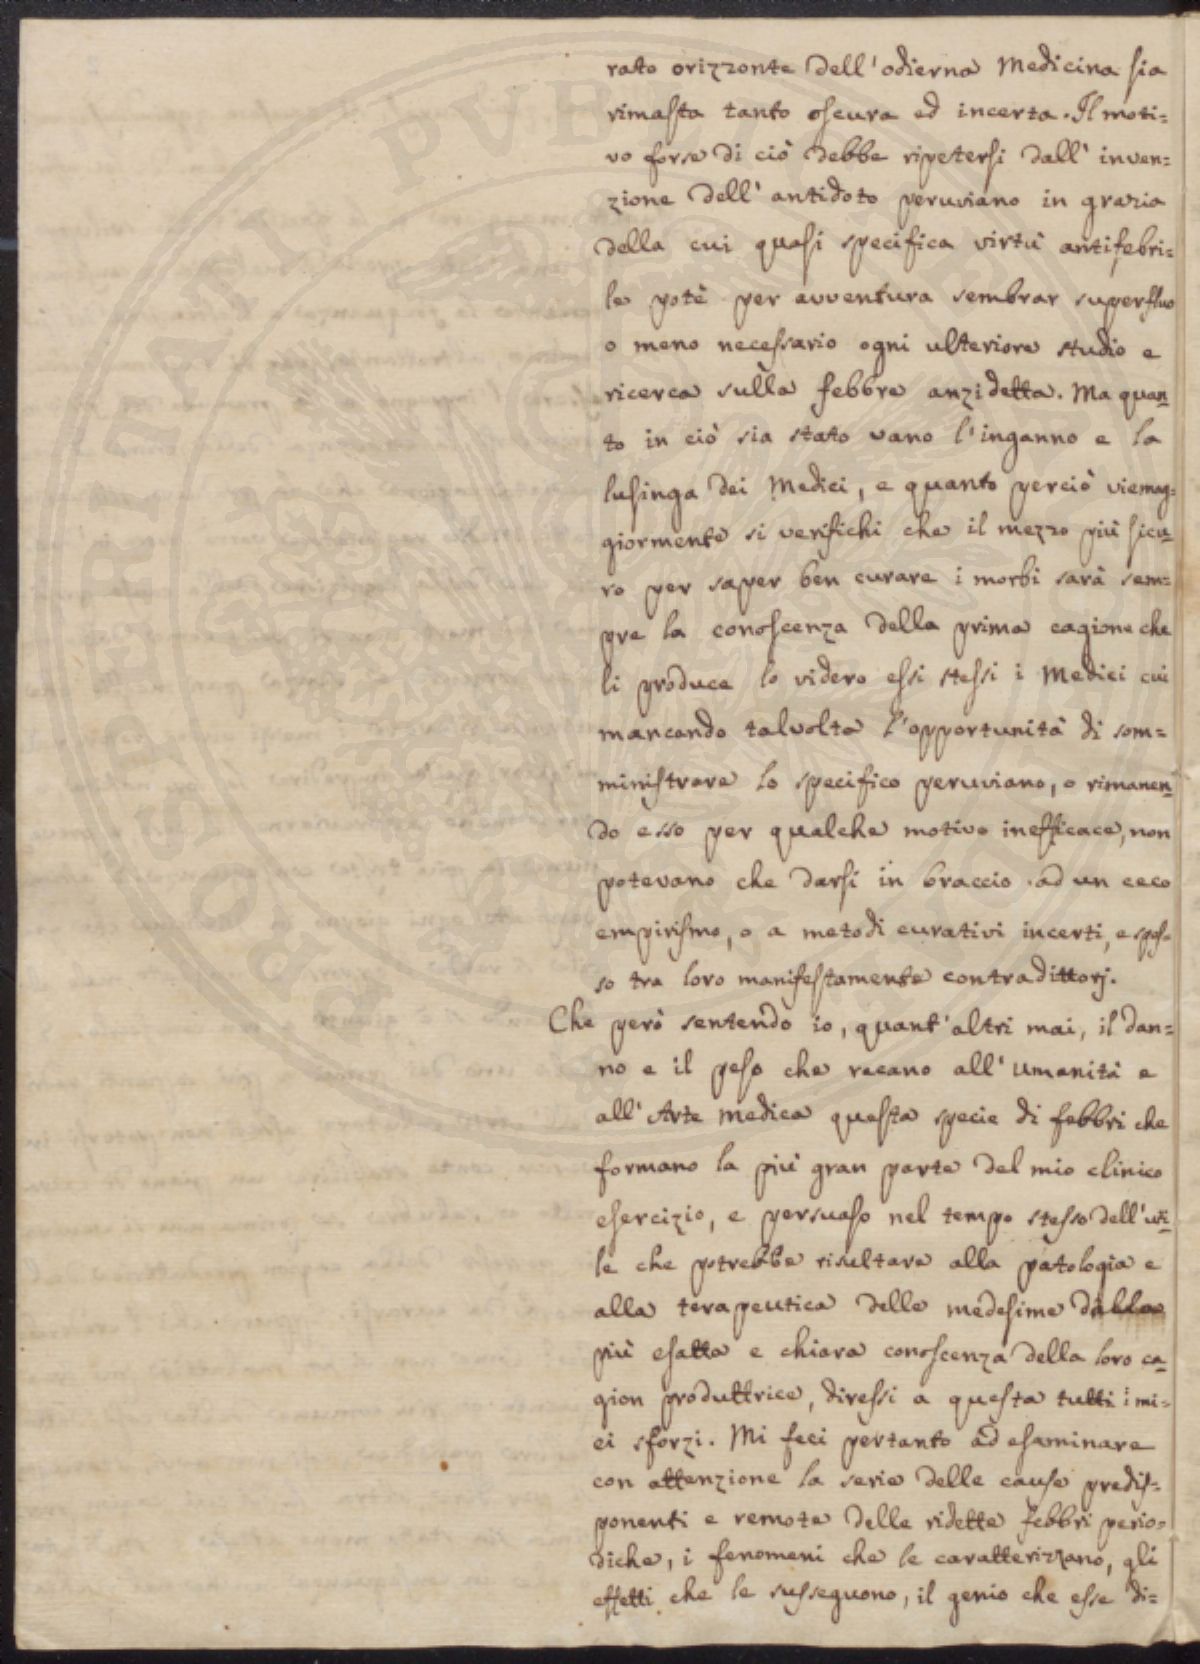 rato orizzonte dell'odierna Medicina sia
rimasta tanto oscura ed incerta. Il moti=
vo forse di ciò debbe ripetersi dall'inven=
zione dell'antidoto peruviano in grazia
della cui quasi specifica virtù antifebri=
le potè per avventura sembrar superfluo
o meno necessario ogni ulteriore studio e
ricerca sulla febbre anzidetta. Ma quan
to in ciò sia stato vano l'inganno e la
lusinga dei Medici, e quanto perciò viemag=
giormente si verifichi che il mezzo più sicu
ro per saper ben curare i morbi sarà sem=
pre la conoscenza della prima cagione che
li produce lo videro essi stessi i Medici cui
mancando talvolta l'opportunità di som=
ministrare lo specifico peruviano, o rimanen
do esso per qualche motivo inefficace, non
potevano che darsi in braccio ad un ceco
empirismo, o a metodi curativi incerti, e spes=
so tra loro manifestamente contradittorj.
Che però sentendo io, quant'altri mai, il dan=
no e il peso che recano all'Umanità e
all'Arte medica questa specie di febbri che
formano la più gran parte del mio clinico
esercizio, e persuaso nel tempo stesso dell'uti
le che potrebbe risultare alla patologia e
alla terapeutica delle medesime dalla
più esatta e chiara conoscenza della loro ca
gion produttrice, diressi a questa tutti i mi=
ei sforzi. Mi feci pertanto ad esaminare
con attenzione la serie delle cause predis=
ponenti e remote delle ridette febbri perio=
diche, i fenomeni che le caratterizzano, gli
effetti che le susseguono, il genio che esse di=
PROSPERITATI PVBL